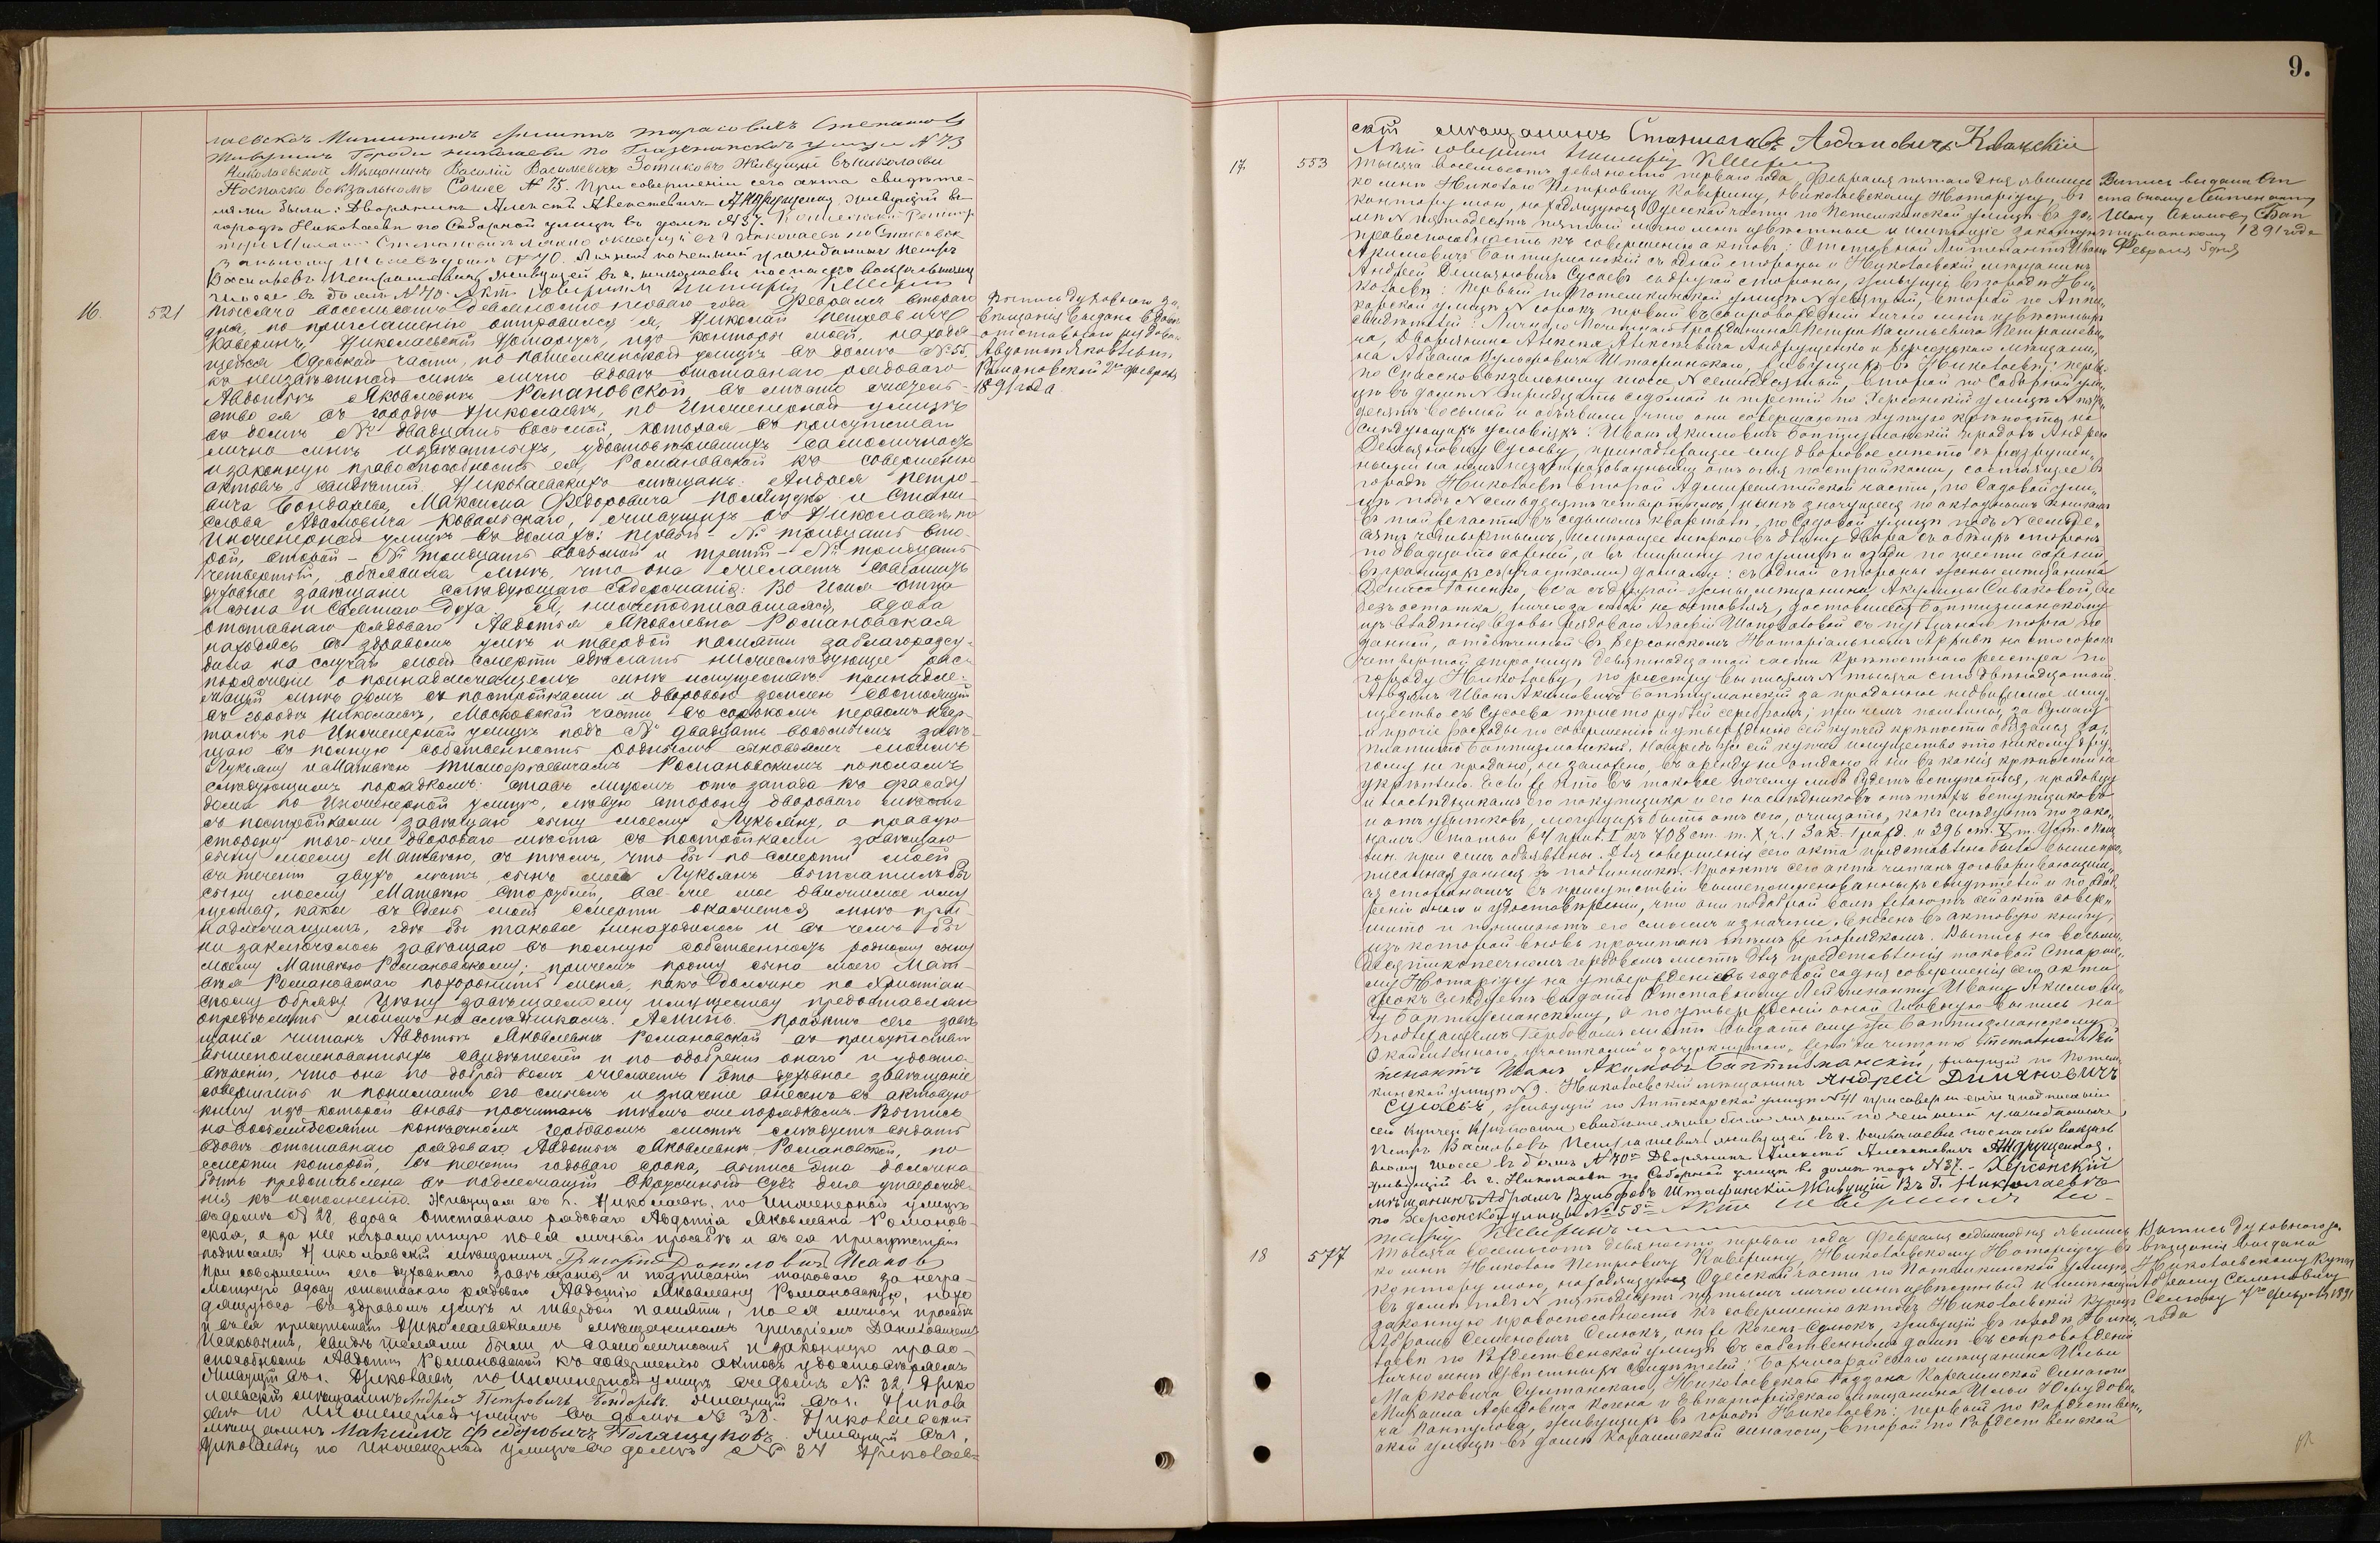 лаевскъ Мѣщанинъ Филиппъ Тарасовичъ Степановъ
Живущій Городи Николаеви по Глазенапской улици № 73
Николаевской Мѣщанинъ Василій Васильевичъ Зотиковъ Живущій въ Николаеви
Поспаско вокзальномъ Сошее № 75. При совершеніи сего акта свидѣте-
лями были: Дворянинъ Алексѣй Алексѣевичъ Андрущенко, живущій въ
городѣ Николаевѣ по Соборной улицѣ въ домѣ № 37.
Личный почетный гражданинъ Петръ
Васильевъ Петрашевичъ, живущій въ г. Николаевѣ по спаско вокзальному
шоссе въ домѣ № 70. Актъ совершилъ Нотаріусъ
16.
521
Тысяча восемьсотъ девяносто перваго года Февраля второго
дня, по приглашенію отправился я, Николай Петровичъ
Каверинъ, Николаевскій Нотаріусъ, изъ конторы моей, находя-
щейся Одесской части, по Потемкинской улицѣ въ домѣ № 55,
къ неизвѣстной мнѣ лично вдовѣ отставнаго рядоваго
Авдотьѣ Яковлевнѣ Романовской, въ мѣсто жительс-
тво ея въ городѣ Николаевѣ, по Инженерной улицѣ
въ домѣ № двадцать восьмой, которая въ присутствіи
лично мнѣ извѣстныхъ, удостовѣрившихъ самоличность
и законную правоспособность ея, Романовской къ совершенію
актовъ свидѣтелей Николаевскихъ мѣщанъ: Андрея Петро-
вича Бондарева, Максима Федоровича Полящука и Стани-
слава Адамовича Ковальскаго, живущихъ въ Николаевѣ, по
Инженерной улицѣ въ домахъ: первый - № тридцать вто-
рой, второй - № тридцать восьмой и третій - № тридцать
четвертый, объявила мнѣ, что она желаетъ совершить
духовное завѣщаніе слѣдующаго содержанія: Во Имя Отца
и сына и Святаго Духа. Я, нижеподписавшаяся, вдова
отставнаго рядоваго Авдотья Яковлевна Романовская
находясь въ здравомъ умѣ и твердой памяти заблагоразсу-
дила на случай моей смерти сдѣлать нижеслѣдующее рас-
поряженіе о принадлежащемъ мнѣ имуществѣ: принадле-
жащій мнѣ домъ съ постройками и дворовою землею состоящій
въ городѣ Николаевѣ, Московской части въ сорокомъ первомъ квар-
талѣ по Инженерной улицѣ подъ № двадцать восьмымъ завѣ-
щаю въ полную собственность роднымъ сыновьямъ моимъ
Лукьяну и Матвѣю Тимофеевичамъ Романовскимъ пополамъ
слѣдующимъ порядкомъ: ставъ лицомъ отъ запада къ фасаду
дома по Инженерной улицѣ, лѣвую сторону двороваго мѣста
съ постройками завѣщаю сыну моему Лукьяну, а правую
сторону того-же двороваго мѣста съ постройками завѣщаю
сыну моему Матвѣю, съ тѣмъ, что бы по смерти моей
въ теченіи двухъ лѣтъ сынъ мой Лукьянъ выплатилъ бы
сыну моему Матвѣю сто рублей, все-же мое движимое иму-
щество, какое въ день моей смерти окажется мнѣ при-
надлежащимъ, гдѣ бы таковое ни находилось и въ чемъ бы
ни заключалось завѣщаю въ полную собственность родному сыну
моему Матвѣю Романовскому; причемъ прошу сына моего Мат-
вѣя Романовскаго похоронить меня, какъ должно по Христіан-
скому обряду. Цѣну завѣщаемому имуществу предоставляю
опредѣлить моимъ наслѣдникамъ. Аминь. Проэктъ сего завѣ-
щанія читанъ Авдотьѣ Яковлевнѣ Романовской въ присутствіи
вышепоименованныхъ свидѣтелей и по одобреніи онаго и удосто-
вѣреніи, что она по доброй волѣ желаетъ это духовное завѣщаніе
совершить и понимаетъ его смыслъ и значеніе внесенъ въ актовую
книгу изъ которой вновь прочитанъ тѣмъ же порядкомъ. Выпись
на восьмидесяти копѣечномъ гербовомъ листѣ слѣдуетъ выдать
вдовѣ отставнаго рядоваго Авдотьѣ Яковлевнѣ Романовской, по
смерти которой, въ теченіи годоваго срока, выпись эта должна
быть представлена въ подлежащій Окружный Судъ для утвержде-
нія къ исполненію. Живущая въ г. Николаевѣ, по Инженерной улицѣ
въ домѣ № 28, вдова отставнаго рядоваго Авдотія Яковлевна Романов-
ская, а за нее неграмотную по ея личной просьбѣ и въ ея присутствіи
подписалъ Николаевскій мѣщанинъ Григорій Даниловичъ Исаков
При совершеніи сего духовнаго завѣщанія и подписаніи таковаго за негра-
мотную вдову отставнаго рядоваго Авдотію Яковлевну Романовскую, нахо
дящуюся въ здравомъ умѣ и твердой памяти, по ея личной просьбѣ
и въ ея присутствіи Николаевскимъ мѣщаниномъ Григоріемъ Даниловичемъ
Исаковымъ, свидѣтелями были и самоличность и законную право-
способность Авдотьи Романовской къ совершенію актовъ удостовѣряемъ
Живущій въ г. Николаевѣ, по Инженерной улицѣ въ домѣ № 32 Нико
лаевскій мѣщанинъ Андрей Петровичъ Бондоревъ. Живущій въ г. Никола
евѣ по Инженерной улицѣ въ домѣ № 38. Николаевскій
мѣщанинъ Максимъ Федоровичъ Полящуковъ. Живущій въ г.
Николаевѣ, по Инженерной улицѣ въ домѣ № 34 Николаев-
Выпись духовнаго за-
вѣщанія выдана вдовѣ
отставнаго рядового
Авдотьѣ Яковлевнѣ
Романовской 2го февраля
1891 года
9.
скій мѣщанинъ Станиславъ Адамовичъ Ковальскій
Актъ совершилъ Нотаріусъ
17.
553
Тысяча восемьсотъ девяносто перваго года, Февраля пятаго дня явились
ко мнѣ Николаю Петровичу Каверину, Николаевскому Нотаріусу, въ
контору мою, находящуюся Одесской части по Потемкинской улицѣ въ до-
мѣ № пятьдесятъ пятый лично мнѣ извѣстные и имѣющіе законную
правоспособность къ совершенію актовъ: Отставной Лейтенантъ Иванъ
Акимовичъ Баптизманскій съ одной стороны и Николаевскій мѣщанинъ
Андрей Демьяновичъ Сусоевъ съ другой стороны, живущіе въ городѣ Ни-
колаевѣ: первый по Потемкинской улицѣ № девятый, второй по Апте-
карской улицѣ № сорокъ первый въ сопровожденіи лично мнѣ извѣстныхъ
свидѣтелей: Личнаго Почетнаго Гражданина Петра Васильевича Петрашеви-
ча, Дворянина Алексѣя Алексѣевича Андрущенко и Херсонскаго мѣщани-
на Абрама Вульфовича Штафинскаго, живущихъ въ Николаевѣ: первый
по Спассковокзальному шоссе № семидесятый, второй по Соборной ули-
цѣ въ домѣ № тридцать седьмой и третій по Херсонской улицѣ № пять-
десятъ восьмой и объявили, что они совершаютъ купчую крѣпость на
слѣдующихъ условіяхъ: Иванъ Акимовичъ Баптизманскій продалъ Андрею
Демьяновичу Сусоеву, принадлежащее ему дворовое мѣсто съ разрушен-
ными на немъ незастрахованными отъ огня постройками, состоящее въ
городѣ Николаевѣ второй Адмиралтейской части, по Садовой ули-
цѣ подъ № семьдесятъ четвертымъ, нынѣ значущееся по актовымъ книгамъ
въ той же части въ седьмомъ кварталѣ, по Садовой улицѣ подъ № семьде-
сятъ четвертымъ, имѣющее мѣрою въ длину двора съ обѣихъ сторонъ
по двадцати сажней, а въ ширину по улицѣ и сзади по шести сажней
въ границахъ съ участками; домами: съ одной стороны жены мѣщанина
Дениса Гоненко, а съ другой жены мѣщанина Акулины Сиваковой, все
безъ остатка, ничего за собой не оставляя, доставшееся Баптизманскому
изъ владѣнія вдовы рядоваго съ публичнаго торга по
данной, отмѣченной въ Херсонскомъ Нотаріальномъ Архивѣ на стосорокъ
четвертой страницѣ девятнадцатой части крѣпостнаго реестра по
городу Николаеву, по реестру выписей № тысяча сто двѣнадцатый.
А взялъ Иванъ Акимовичъ Баптизманскій за проданное недвижимое иму-
щество съ Сусоева триста рублей серебромъ; при чемъ пошлины, за бумагу
и прочіе расходы по совершенію и утвержденію сей купчей крѣпости обязался за-
платить Баптизманскій. Напредь сей купчей имущество это никому дру-
гому не продано, не заложено, въ аренду не отдано и ни въ какія крѣпости не
укрѣплено. Если же кто въ таковое почему либо будетъ вступаться, продавцу
и наслѣдникамъ его покупщика и его наслѣдниковъ отъ тѣхъ вступщиковъ
и отъ убытковъ, могущихъ быть отъ сего, очищать, какъ слѣдуетъ по зако-
намъ. Статьи 64 прил. I къ 708 ст. т. X, ч. 1 Зак. Гражд. и 296 ст. V т. Уст. о пош
лин. при семъ объявлены. Для совершенія сего акта представлена была вышепро-
писанная данная въ подлинникѣ. Проэктъ сего акта читанъ договаривающим-
ся сторонамъ въ присутствіи вышепоименованныхъ свидѣтелей и по одоб-
реніи онаго и удостовѣреніи, что они по доброй волѣ желаютъ сей актъ совер-
шить и понимаютъ его смыслъ и значеніе, внесенъ въ актовую книгу,
изъ которой вновь прочитанъ тѣмъ же порядкомъ. Выпись на восьми-
десятикопѣечномъ гербовомъ листѣ для представленія таковой Старше-
му Нотаріусу на утвержденіе въ годовой со дня совершенія сего акта
срокъ слѣдуетъ выдать Отставному Лейтенанту Ивану Акимови-
чу Баптизманскому, а по утвержденіи оной Главную выпись на
подлежащемъ Гербовомъ листѣ выдать ему же Баптизманскому
Отставной Лей
тенантъ Иванъ Акимовъ Баптизманскій, живущій по Потем-
кинской улицѣ № 9. Николаевскій мѣщанинъ Андрей Димяновичъ
Сусоевъ, живущій по Аптекарской улицѣ № 41 При совершеніи и подписаніи
сей Купчей Крѣпости свидѣтелями были личный почетный гражданинъ
Петръ Васильевъ Петрашевичъ живущій въ г. Николаевѣ по спаско вокзаль
ному шоссе въ домѣ № 70й Дворянинъ Алексѣй Алексѣевичъ Андрущенко,
живущій въ г. Николаевѣ по Соборной улицѣ въ домѣ подъ № 37. - Херсонскій
мѣщанинъ Абрамъ Вульфовъ Штафинскій Живущій Въ Г. Николаевѣ
по Херсонской улицѣ № 58й Актъ совершилъ Но-
таріусъ Каверинъ
Выпись выдана От
ставному Лейтенанту
Ивану Акимову Бап
тизманскому 1891 года
Февраля 5 дня
18
577
Тысяча восемьсотъ девяносто перваго года Февраля седьмаго дня явились
ко мнѣ Николаю Петровичу Каверину, Николаевскому Нотаріусу въ
контору мою, находящуюся Одесской части по Потемкинской улицѣ,
въ домѣ подъ № пятьдесятъ пятымъ лично мнѣ извѣстный и имѣющій
законную правоспособность къ совершенію актовъ Николаевскій купецъ
Абрамъ Семеновичъ Селюкъ, онъ же Когенъ-Селюкъ, живущій въ городѣ Нико-
лаевѣ по Рождественской улицѣ въ собственномъ домѣ въ сопровожденіи
лично мнѣ извѣстныхъ свидѣтелей: Бахчисарайскаго мѣщанина Ильи
Марковича Султанскаго, Николаевскаго Газзана Караимской Синагоги
Михаила Когена и Евпаторійскаго мѣщанина Ильи Юфудови-
ча Пампулова, живущихъ въ городѣ Николаевѣ: первый по Рождествен-
ской улицѣ въ домѣ Караимской синагоги, второй по Рождественской
Выпись духовного за
вѣщанія выдана
Николаевскому Купцу
Абраму Семеновичу
Селюку 7го февраля 1891
года